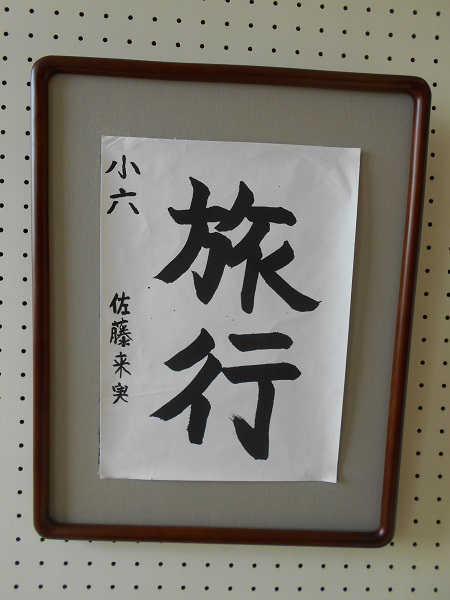 旅行
小六
佐藤来実